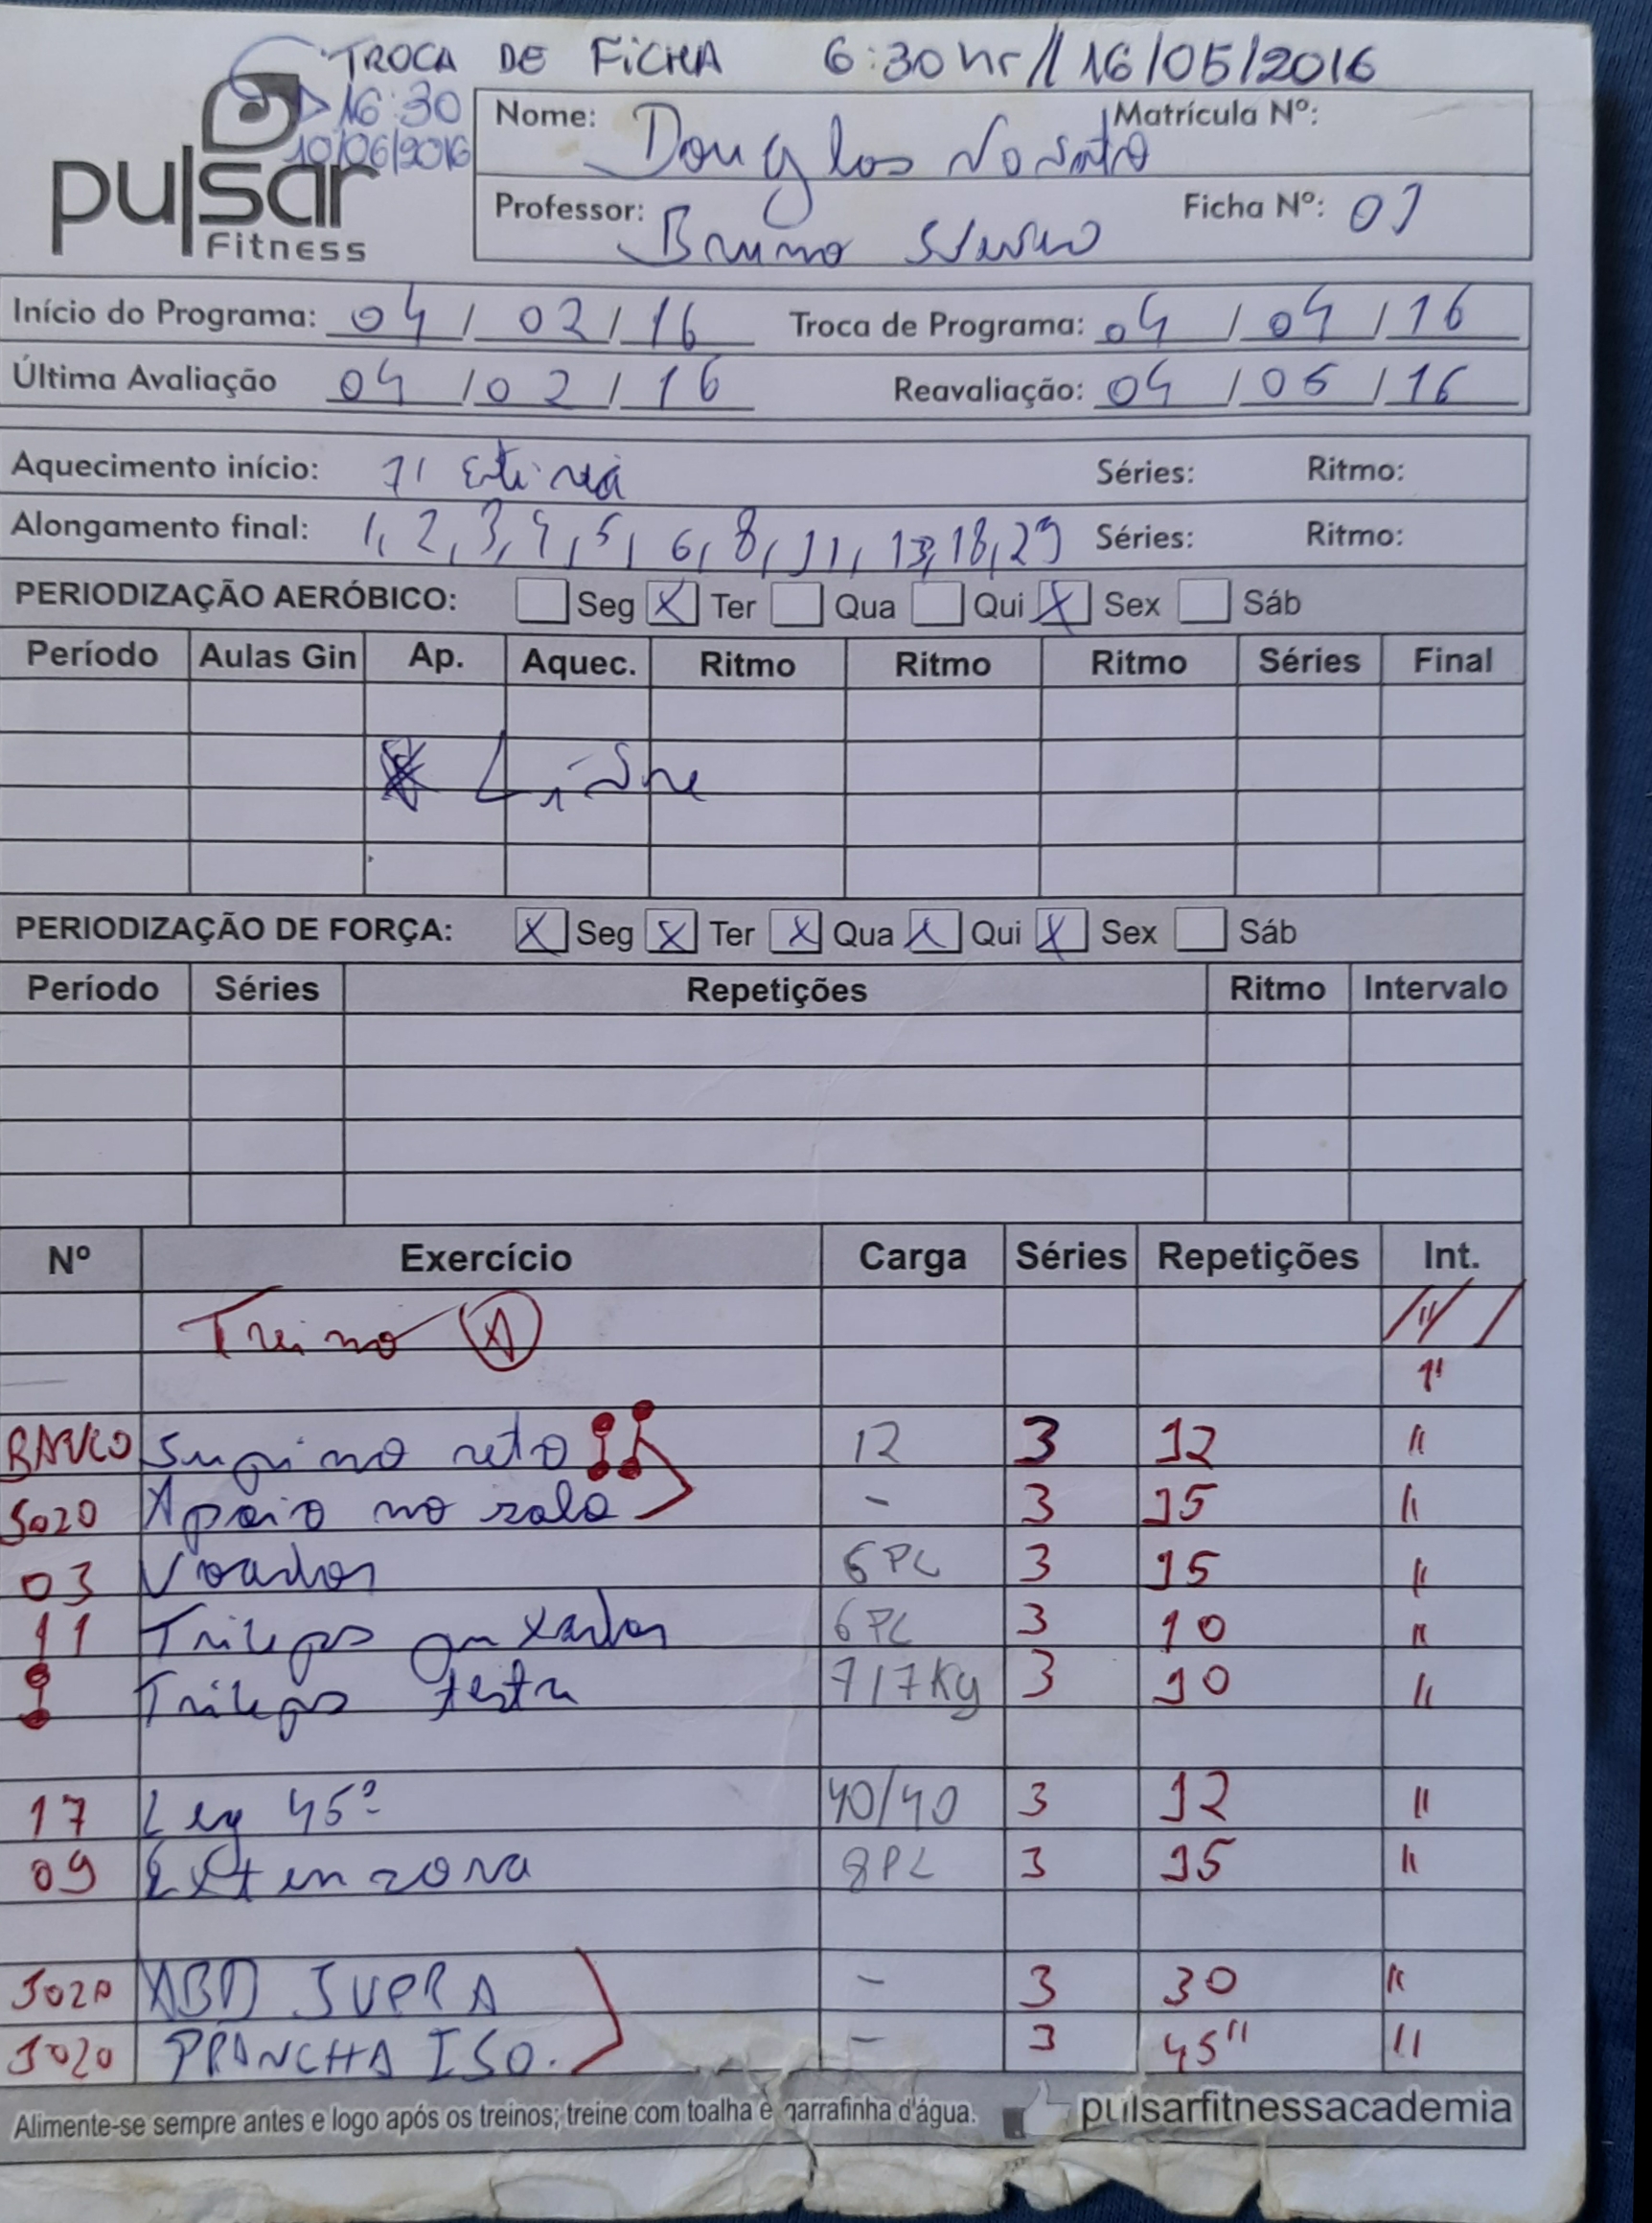 TROCA DE FICHA 6:30 hr // 16/05/2016
16:30
10/06/2016
pulsar
Fitness
Nome: Douglas Matrícula Nº:
Professor: Bruno Ficha Nº: 01
Início do Programa: 04 / 02 / 16 Troca de Programa: 04 / 04 / 16
Última Avaliação 04 / 02 / 16 Reavaliação: 04 / 05 / 16
Aquecimento início: 7' Esteira Séries: Ritmo:
Alongamento final: 1, 2, 3, 4, 5, 6, 8, 11, 13, 18, 29 Séries: Ritmo:
PERIODIZAÇÃO AERÓBICO: Seg X Ter Qua Qui X Sex Sáb
Período Aulas Gin Ap. Aquec. Ritmo Ritmo Ritmo Séries Final
Livre
PERIODIZAÇÃO DE FORÇA: X Seg X Ter X Qua X Qui X Sex Sáb
Período Séries Repetições Ritmo Intervalo
Nº Exercício Carga Séries Repetições Int.
Treino A
1'
BANCO Supino reto 12 3 12 "
Solo Apoio no solo - 3 15 "
03 Voador 6 PL 3 15 "
11 Triceps puxador 6 PL 3 10 "
Triceps testa 7/7Kg 3 10 "
17 Leg 45º 40/40 3 12 "
09 Extensora 8 PL 3 15 "
Solo ABD SUPRA - 3 30 "
Solo PRANCHA ISO. - 3 45" "
Alimente-se sempre antes e logo após os treinos; treine com toalha e garrafinha d'água. pulsarfitnessacademia